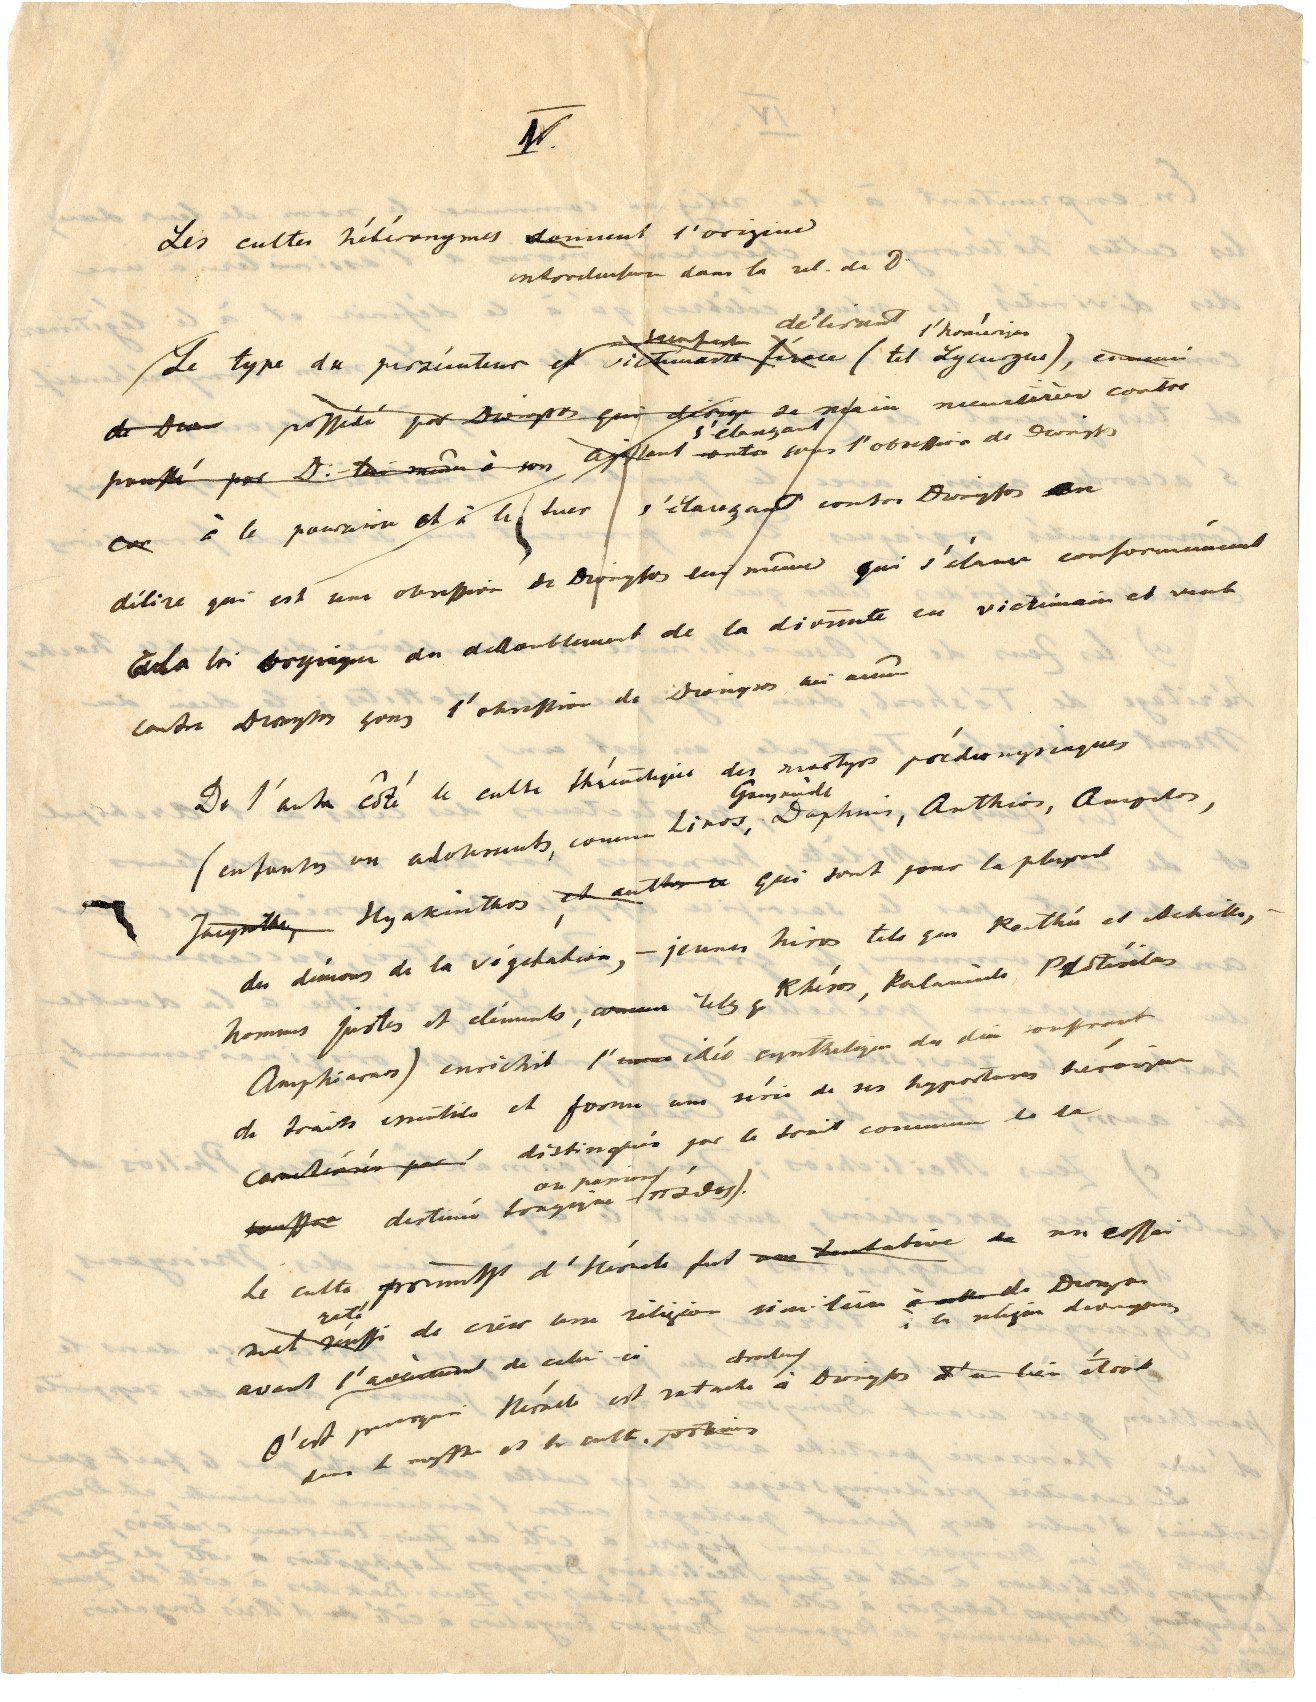 IV.
Les cultes hétéronymes donnent l'origine
introduction dans la rel. de D
délirant l'homérique
Le type du persécuteur et victimaire féroce (tel Lycurgue), ennemi
de Dieu possédé par Dionysos qui dirige sa main meurtrière contre
s'élançant
poussé par D. lui même à son agissant contre sous l'obsession de Dionysos
car à le poursuivre et à le tuer s'élançant contre Dionysos en
délire qui est une obsession de Dionysos lui même qui s'élance conformément
à la loi orgiaque du dédoublement de la divinité en victimaire et
contre Dionysos sous l'obsession de Dionysos lui même
De l'autre côté le culte thrénétique des martyrs prédionysiaques
Ganymède
(enfants ou adolescents, comme Linos, Daphnis, Anthios, Ampelos,
Jacynthe, Hyakinthos et autres qui sont pour la plupart
des démons de la végétation, – jeunes héros tels que Penthée et Achille, –
hommes justes et cléments, comme tels q Rhésos, Palamède Protésilas
Amphiaraos) enrichit l'idée synthétique du dieu souffrant
de traits essentiels et forme une série de ses hypostases héroïques
caractérisés par distingués par le trait commun de la
ou passion
souffre destinée tragique (πάθος).
Le culte primitif d'Héraclès fut une tentative de un essai
raté
réussi de créer une religion similaire à celle de Dionysos
à la religion dionysiaque
avant l'avènement de celui-ci
C'est pourquoi Héraclès est rattaché à Dionysos d'un lien étroit
dans le mythe et le culte.